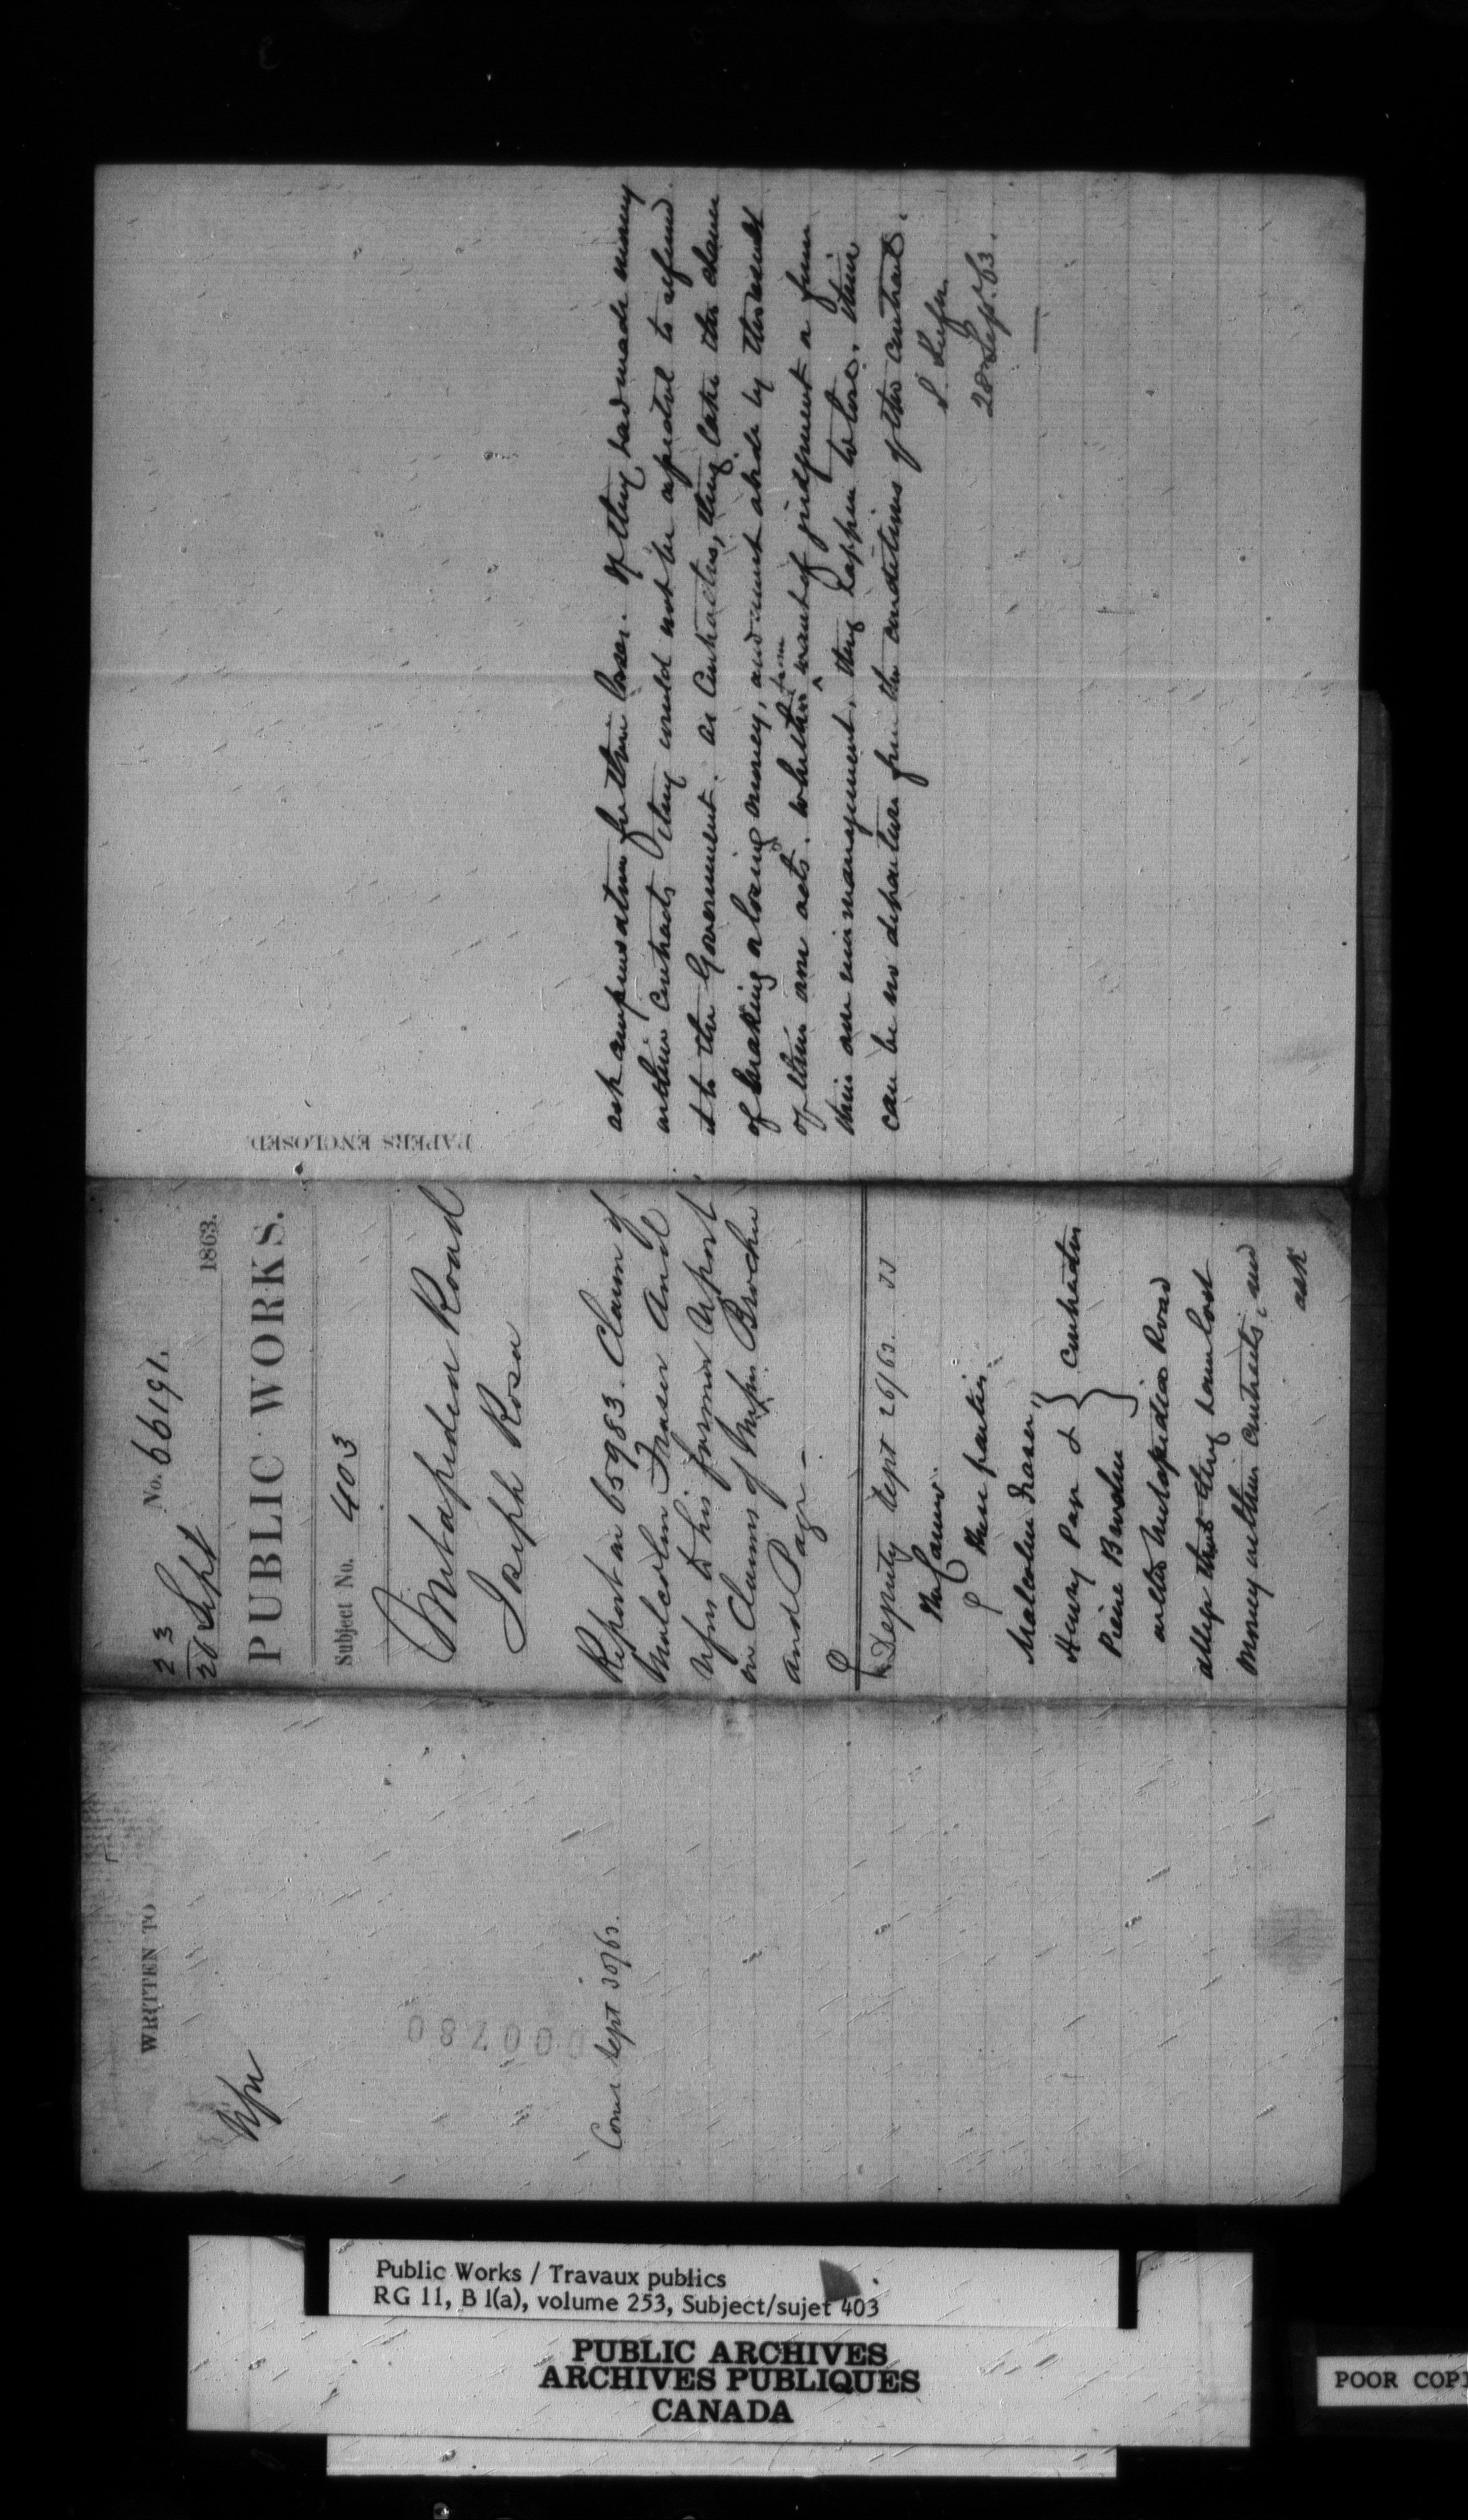 WRITTEN TO
Come Sept 30/63.
000780
23
28 Sept
No. 66191.
1863.
PUBLIC WORKS.
Subject No. 403
Metapedia Road
Joseph Rosa
Report on 65983. Claim of
Malcolm Fraser and
refers to his former report
on Claims of Messrs Brochu
and Page -
Deputy Sept 26/63.
These parties.
Malcolm Fraser,
Henry Page &
Pierre Brochu
} Contractors
on the Metapedia Road
allege that they have lost
money on their contracts, and
ask
PAPERS ENCLOSED
ask compensation for their losses. If they had made money
on their contracts they would not be expected to refund
it to the Government. As Contractors, they take the chance
of making or losing money, and must abide by the result
of their own acts. Whether from want of judgment or from
their own mismanagement, they happen to lose. There
can be no departure from the conditions of the contract.
28 Sep. 63.
Public Works / Travaux publics
RG 11, B 1(a), volume 253, Subject/sujet 403
PUBLIC ARCHIVES
ARCHIVES PUBLIQUES
CANADA
POOR COPI